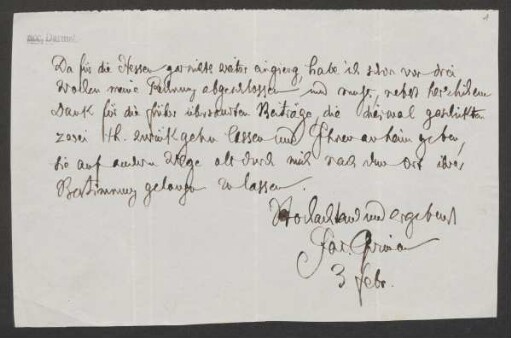 Da für die Hessen gar nichts weiter eingieng, habe ich schon vor drei
wochen meine Rechnung abgeschlossen und muß, nebst herzlichem
Dank für die früher übersandten Beiträge, die diesmal geschickten
zwei th. zurückgehn lassen und Ihnen anheim geben,
sie auf anderm Wege als durch mich nach dem Ort ihrer
Bestimmung gelangen zu lassen.
Hochachtend und ergebenst
Jac. Grimm
3 febr.